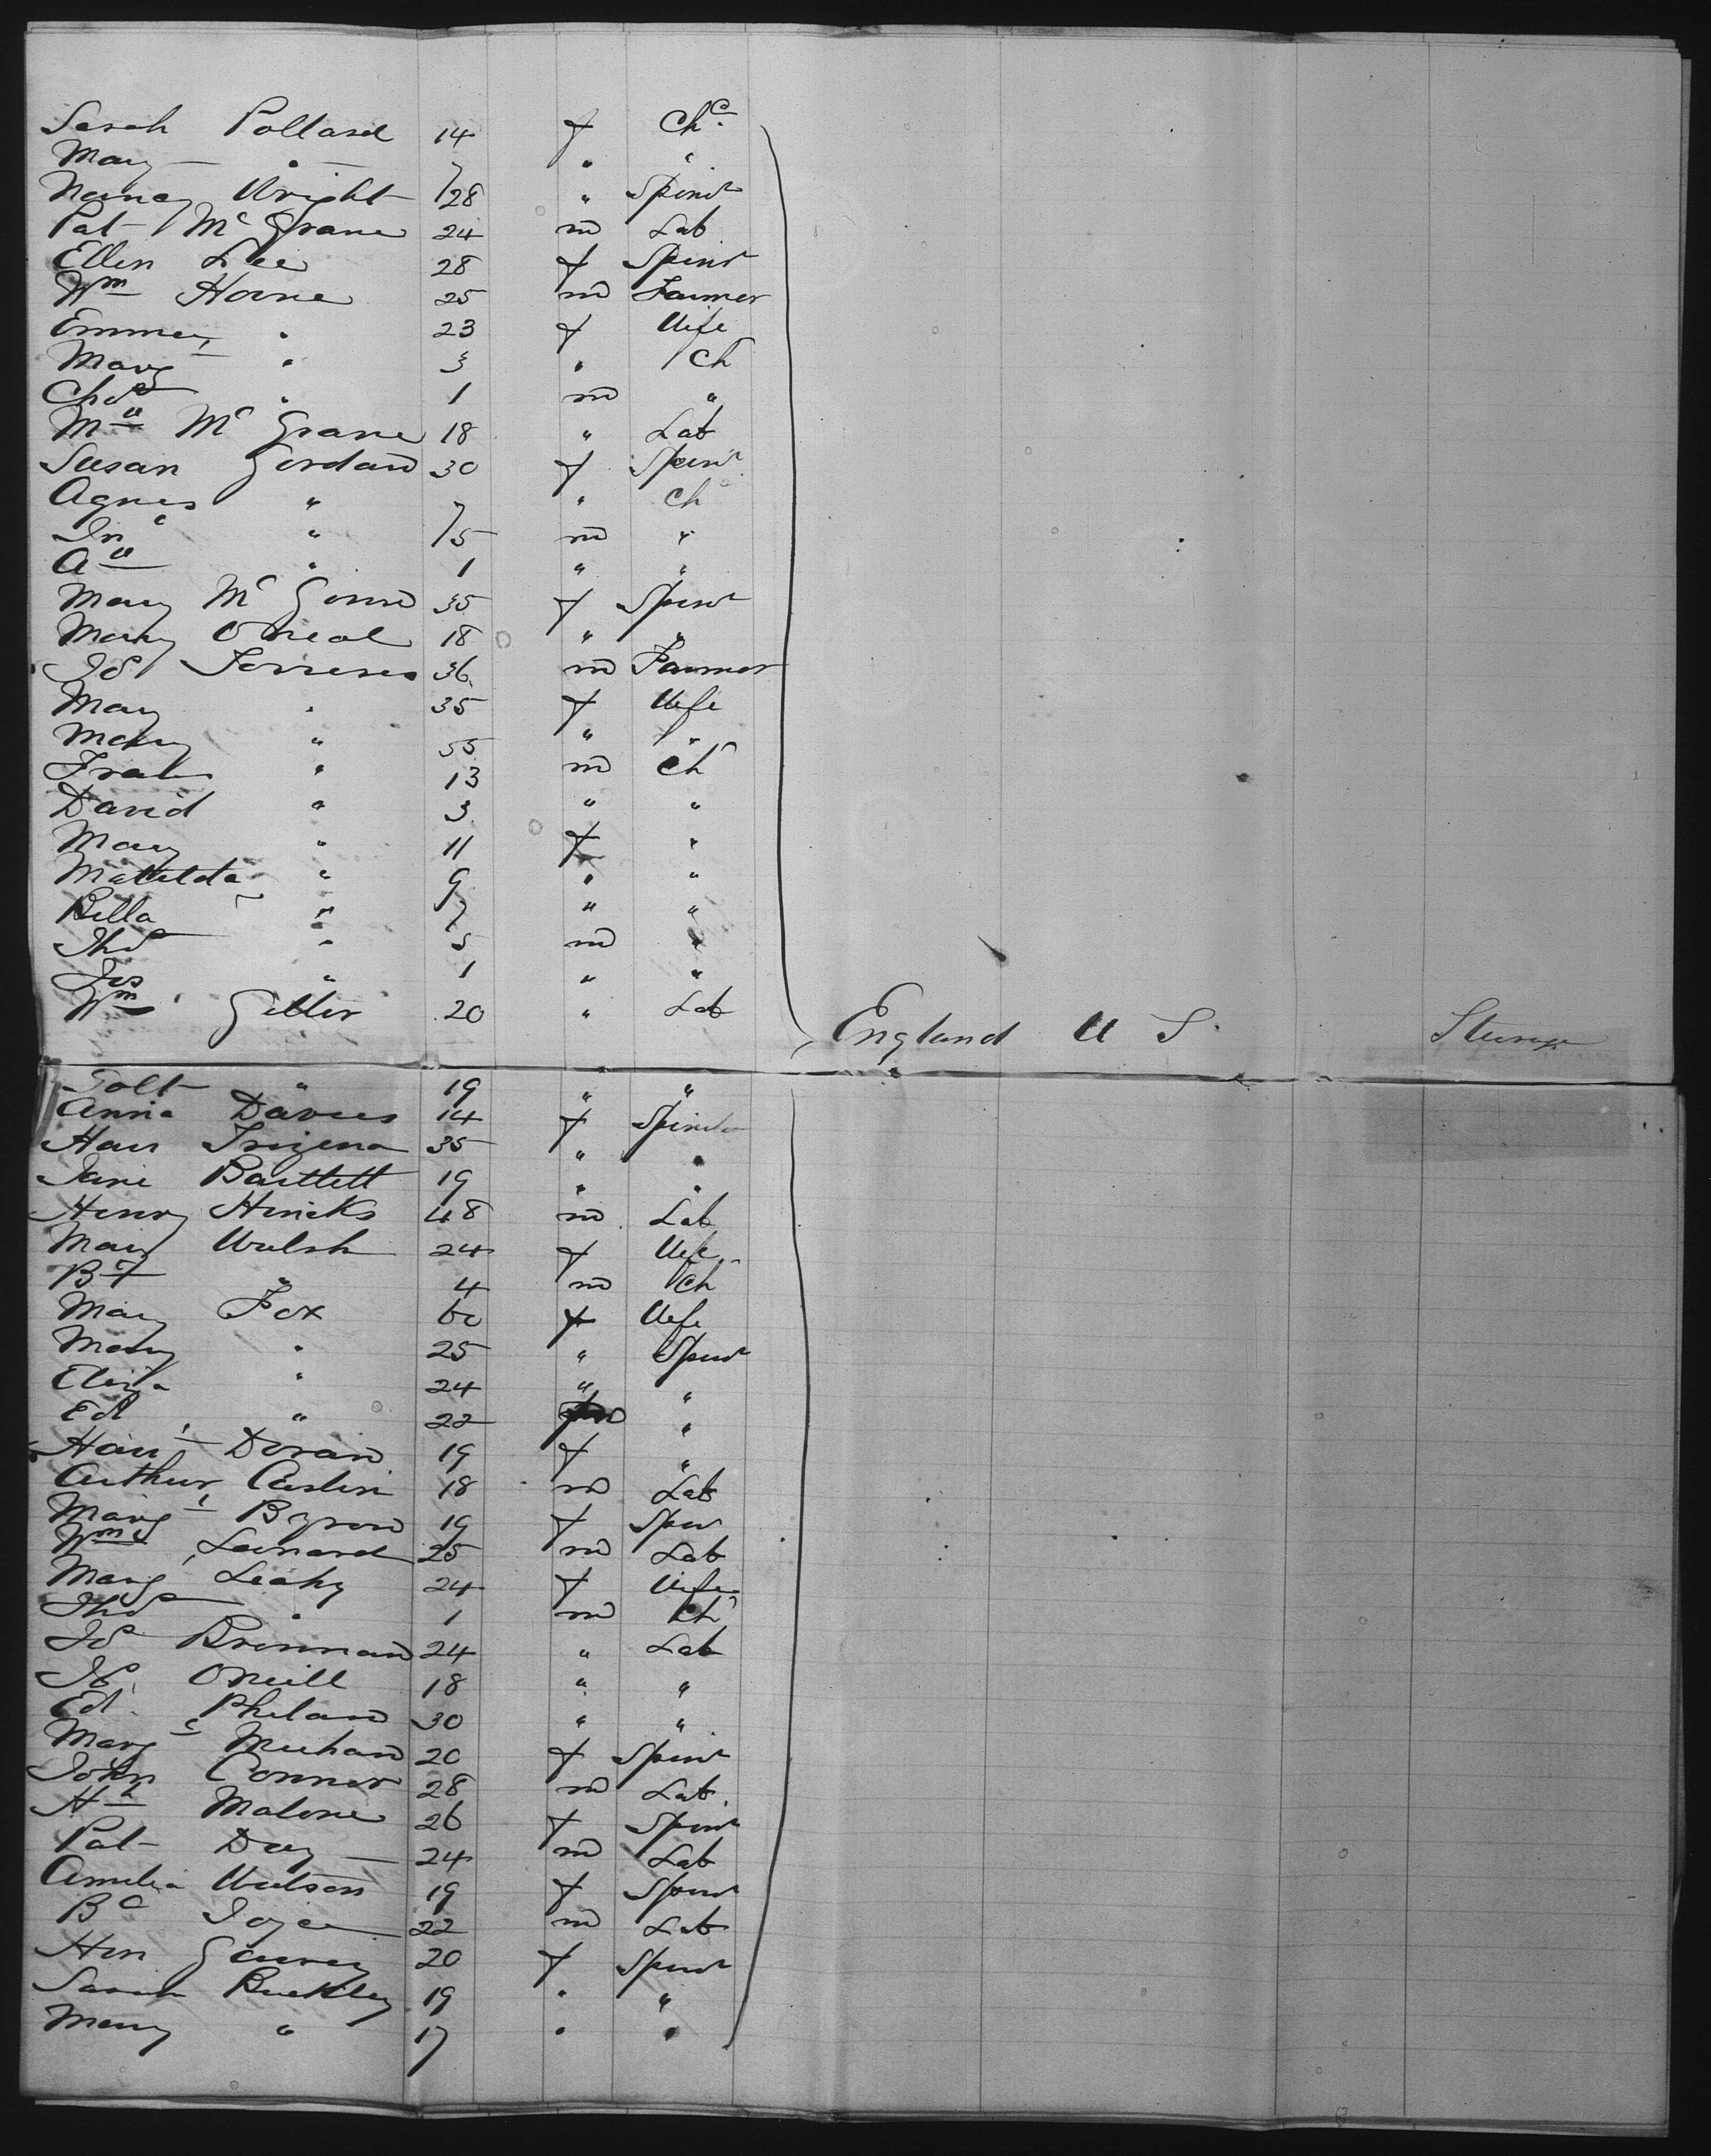 Sarah Pollard 14 f Ch
Mary " 7 " "
Nancy Wright 28 " Spinr
Pat McGrane 24 m Lab
Ellen Lee 28 f Spinr
Wm Horne 25 m Farmer
Emma " 23 f Wife
Marg " 3 " Ch
Chas " 1 m "
McGrane 18 " Lab
Susan Gordan 30 f Spinr
Agnes " 7 " Ch
Jn " 5 m "
" 1 " "
Mary 35 f Spinr
Mary ONeal 18 " "
36 m Farmer
Mary " 35 f Wife
Mary " 55 " "
" 13 m Ch
David " 3 " "
Mary " 11 f "
Matilda " 9 " "
Bella " 7 " "
Thos " 5 m "
Jos " 1 " "
Wm 20 " Lab
England U S
" 19 " "
Anna Davies 14 f Spinr
35 " "
Jane Bartlett 19 " "
Henry Hincks 48 m Lab
Mary Walsh 24 f Wife
" 4 m Ch
Mary Fox 60 f Wife
Mary " 25 " Spinr
Eliza " 24 " "
Ed " 22 m "
Doran 19 f "
Arthur Carlin 18 m Lab
Margt Byron 19 f Spin
Wm Leonard 25 m Lab
Marg Leahy 24 f Wife
Thos " 1 m Ch
Brennan 24 " Lab
ONeill 18 " "
Ed Phelan 30 " "
Marg Meehan 20 f Spinr
John Connor 28 m Lab
Malone 26 f Spinr
Pat Day 24 m Lab
Amelia Watson 19 f Spinr
Joyce 22 m Lab
20 f Spinr
Sarah Buckley 19 " "
Mary " 17 " "